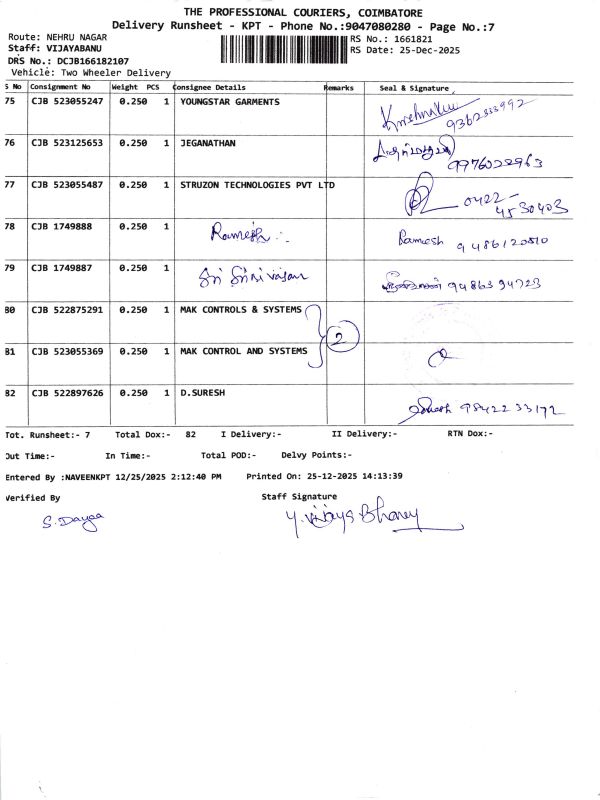 THE PROFESSIONAL COURIERS, COIMBATORE
Delivery Runsheet - KPT - Phone No.:9047080280 - Page No.:7
Route: NEHRU NAGAR
RS No.: 1661821
Staff: VIJAYABANU
RS Date: 25-Dec-2025
DRS No.: DCJB166182107
Vehicle: Two Wheeler Delivery
S No Consignment No Weight PCS Consignee Details Remarks Seal & Signature
75 CJB 523055247 0.250 1 YOUNGSTAR GARMENTS 9362333992
76 CJB 523125653 0.250 1 JEGANATHAN 9976022963
77 CJB 523055487 0.250 1 STRUZON TECHNOLOGIES PVT LTD 0422-
4530403
78 CJB 1749888 0.250 1 Ramesh Ramesh 9486120810
79 CJB 1749887 0.250 1 Sri Srinivasan 9486394723
80 CJB 522875291 0.250 1 MAK CONTROLS & SYSTEMS
2
81 CJB 523055369 0.250 1 MAK CONTROL AND SYSTEMS
82 CJB 522897626 0.250 1 D.SURESH 9842233172
Tot. Runsheet:- 7 Total Dox:- 82 I Delivery:- II Delivery:- RTN Dox:-
Out Time:- In Time:- Total POD:- Delvy Points:-
Entered By :NAVEENKPT 12/25/2025 2:12:40 PM Printed On: 25-12-2025 14:13:39
Verified By Staff Signature
S. Dayaa Y. Vijaya Bhaney